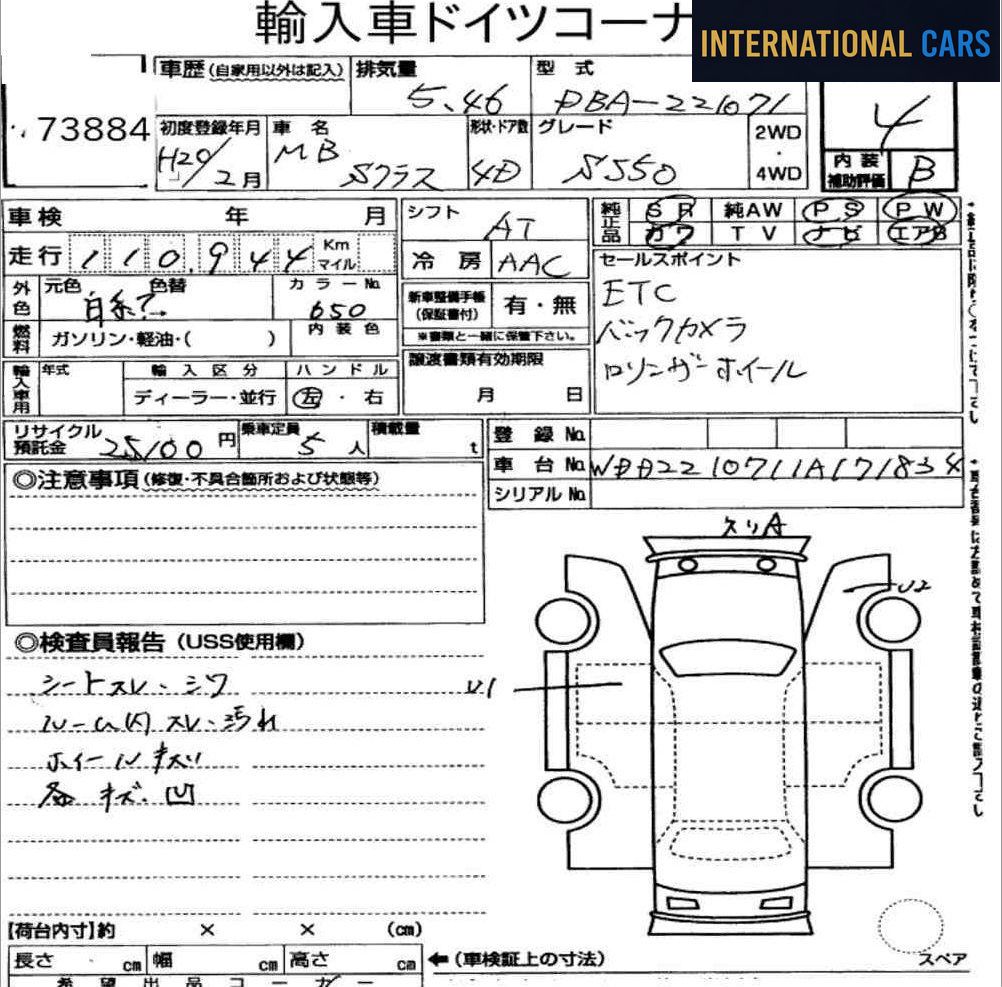 輸入車ドイツコーナ
INTERNATIONAL CARS
73884
車歴(自家用以外は記入) 排気量 5.46 型式 DBA-221071
4
初度登録年月 H20/2月 車名 MB Sクラス 形状・ドア数 4D グレード S550 2WD・4WD
内装補助評価 B
車検 年 月 シフト AT
純正品 SR 純AW PS PW
カワ TV ナビ エアB
走行 110,944 Km マイル
冷房 AAC
セールスポイント
ETC
バックカメラ
ロリンザーホイール
外色 元色 色替 カラーNo. 650
新車整備手帳(保証書付) 有・無
※書類と一緒に保管下さい。
燃料 ガソリン・軽油・( ) 内装色
譲渡書類有効期限
月 日
輸入車用 年式 輸入区分 ハンドル
ディーラー・並行 左・右
リサイクル預託金 25100円 乗車定員 5人 積載量 t
登録No.
車台No. WDD2210711A171834
シリアルNo.
◎注意事項(修復・不具合箇所および状態等)
スリA
U2
◎検査員報告(USS使用欄)
シートスレ・シワ
U1
ルーム内スレ・汚れ
ホイールキズ
各キズ・凹
【荷台内寸】約 × × (cm)
長さ cm 幅 cm 高さ cm
←(車検証上の寸法)
スペア
希望出品コーナー